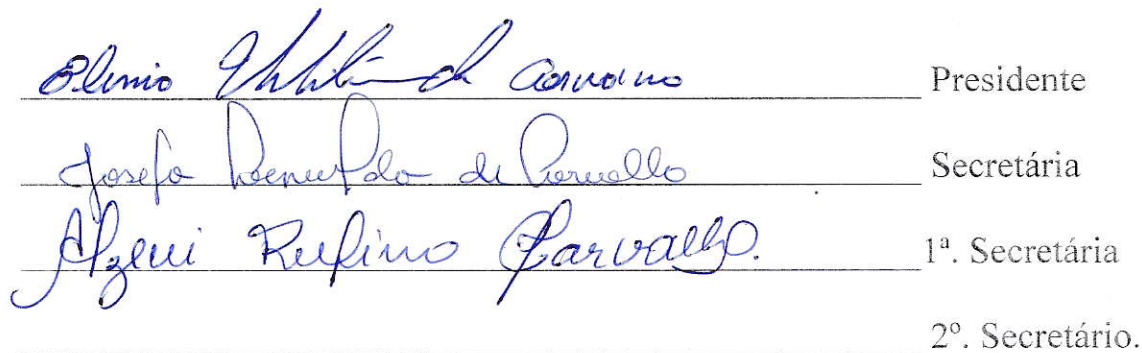 Plinio de Carvalho Presidente
Josefa de Carvalho Secretária
Alzeni Rufino Carvalho. 1ª. Secretária
2º. Secretário.